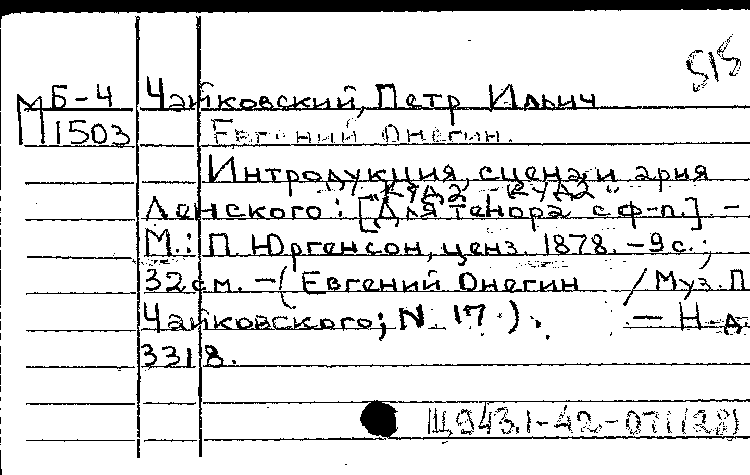 515
МП Б-4 Чайковский, Петр Ильич
1503 Евгений Онегин.
Интродукция, сцена и ария
"Куда куда"
Ленского: [Для тенора с ф-п.]. -
М.: П. Юргенсон, ценз. 1878. - 9 с.;
32 см. - (Евгений Онегин / Муз. П.
Чайковского; N. 17.). - Н.д.
3318.
Щ943.1-42-071(28)